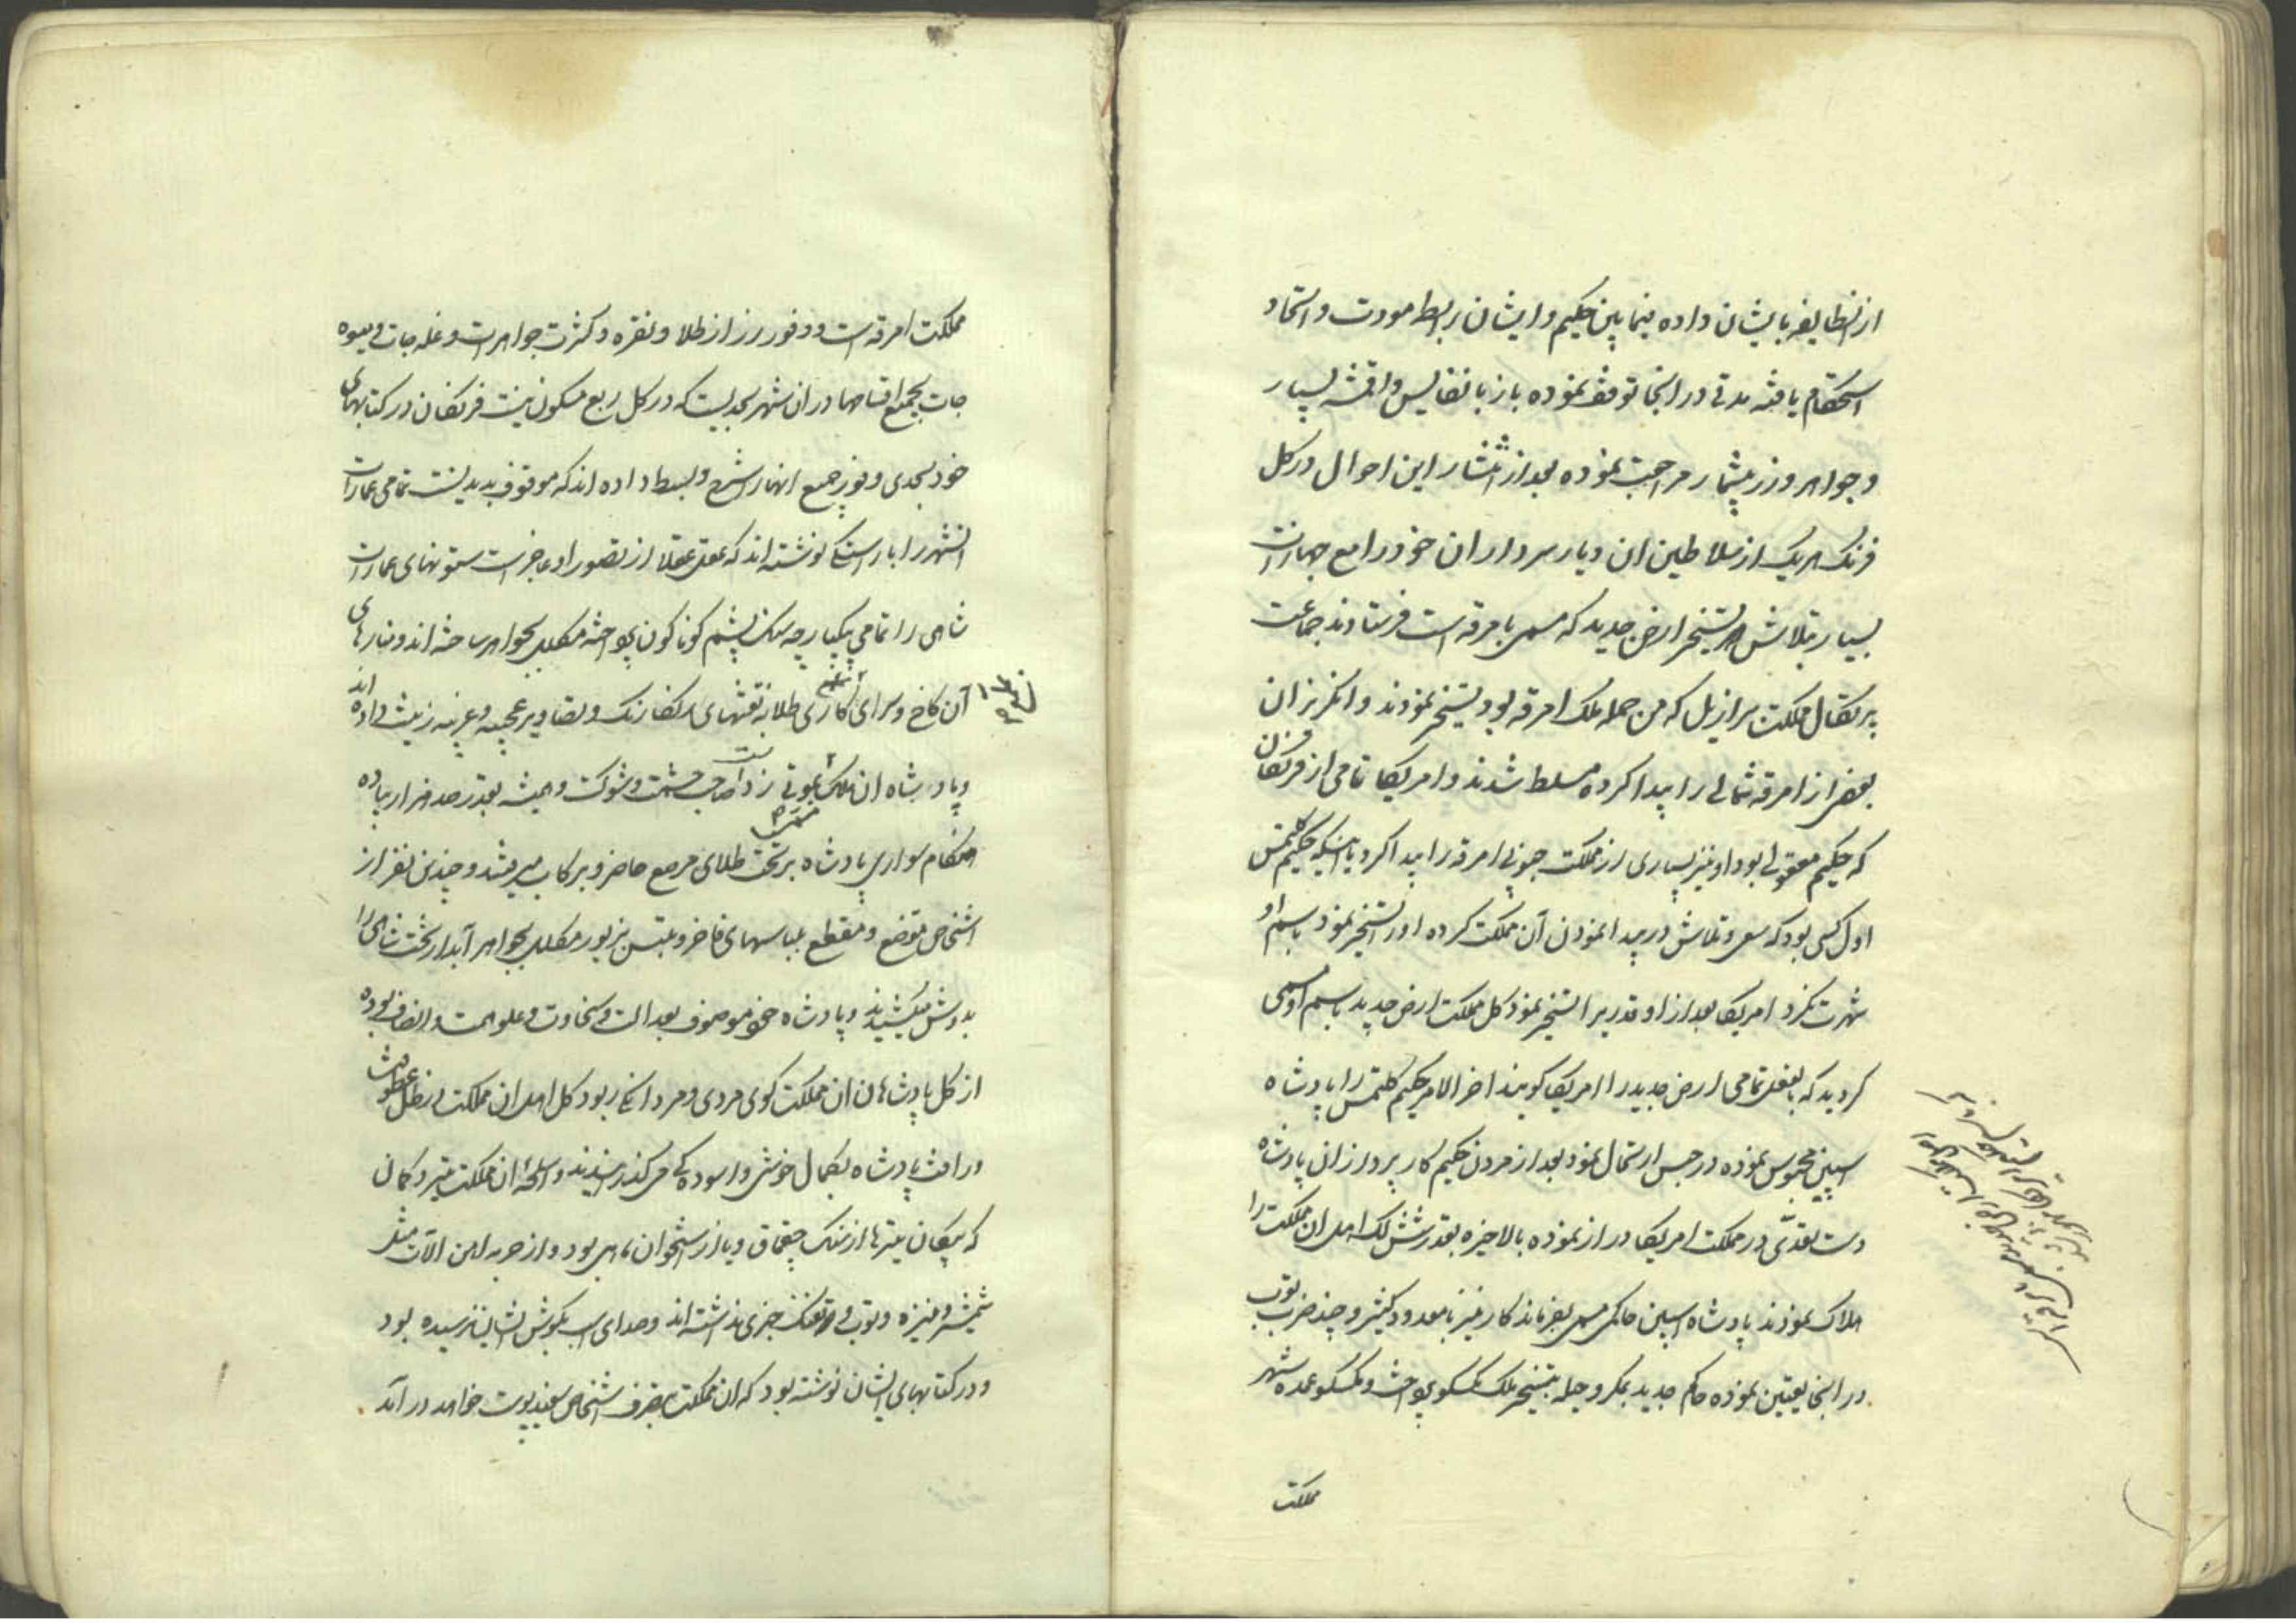 از انطایفه بایشان داده فیمابین حکیم و ایشان ربط مودت و اتحاد
استحکام یافته مدتی در انجا توقف نموده باز با نفایس و اقمشه بسیار
و جواهر و زر بیشمار مراجعت نموده بعد از انتشار این احوال در کل
فرنک هریک از سلاطین ان دیار سرداران خود را مع جهازات
بسیار بتلاش و تسخیر ارض جدید که مسمی بامرقه است فرستادند جماعت
پرتکال مملکت برازیل که من جمله ملک امرقه بود تسخیر نمودند و انکریزان
بعضی از امرقه شمالی را پیدا کرده مسلط شدند و امریکا نامی از فرنکان
که حکیم معقولی بود او نیز بسیاری از مملکت جنوبی امرقه را پیدا کرد با اینکه حکیم کلمتس
اول کسی بود که سعی و تلاش در پیدا نمودن آن مملکت کرده اورا تسخیر نمود باسم او
شهرت نکرد امریکا بعد از او قدریرا تسخیر نمود کل مملکت ارض جدید باسم او مسمی
کردید که بالفعل تمامی ارض جدید را امریکا کویند اخرالامر حکیم کلمتس را پادشاه
اسپین محبوس نموده در حبس ارتحال نمود بعد از مردن حکیم کار پردازان پادشاه
دست تعدّی در مملکت امریکا دراز نموده بالاخیره بقدر شش لک اهل ان مملکت را
هلاک نمودند پادشاه اسپین حاکمی مسمی بفرناندکارنیز با معدود کثیر و چند ضرب توب
در انجا تعیین نموده حاکم جدید بمکر و حیله بتسخیر ملک مکسکو پرداخت و مکسکو عمده شهر
مملکت
مملکت امرقه است و وفور زر از طلا و نقره و کثرت جواهرات و غله جات و میوه
جات بجمیع اقسامها دران شهر بحدیست که در کل ربع مسکون نیست فرنکان در کتابهای
خود بحدی وفور جمیع انها را شرح و بسط داده اند که موقوف بدیدنست تمامی عمارات
انشهر را براستی نوشته اند که عقل عقلا از تصور او عاجز است ستونهای عمارات
شاهی را تمامی یکپارچه سنک یشم کوناکون پرداخته مکلل بجواهر ساخته اند و منارهای
آن کاخ و سرای کاری طلا به نقشهای رنکارنک و تصاویر عجیبه و غریبه زینت داده اند
و پادشاه ان ملک صاحب حشمت و شوکت و همیشه بقدر صد هزار پیاده
هنکام سواری پادشاه بر تخت طلای مرصع حاضر و برکاب میرفتند و چندین نفر از
اشخاص متوضع و مقطع بلباسهای فاخر و ملبس بزیور مکلل بجواهر آبدار تخت شاهی را
بدوش میکشیدند و پادشاه خود موصوف بعدالت و سخاوت و علو همت و انصاف بوده
از کل پادشاهان ان مملکت کوی مردی و مردانکی ربود کل اهل ان مملکت در ظل عطوفت
و رافت پادشاه بکمال خوشی و اسوده کی می کذرانیدند و اسلحه ان مملکت تیر و کمان
که پیکان تیرها از سنک چقماق و یا از استخوان ماهی بود و از حربه اهن الآت مثل
شمشیر و نیزه و توب و تفنک خبری نداشته اند و صدای اسب بکوش ایشان نرسیده بود
و در کتابهای ایشان نوشته بود که ان مملکت بتصرف اشخاص سفید پوست خواهد در آمد